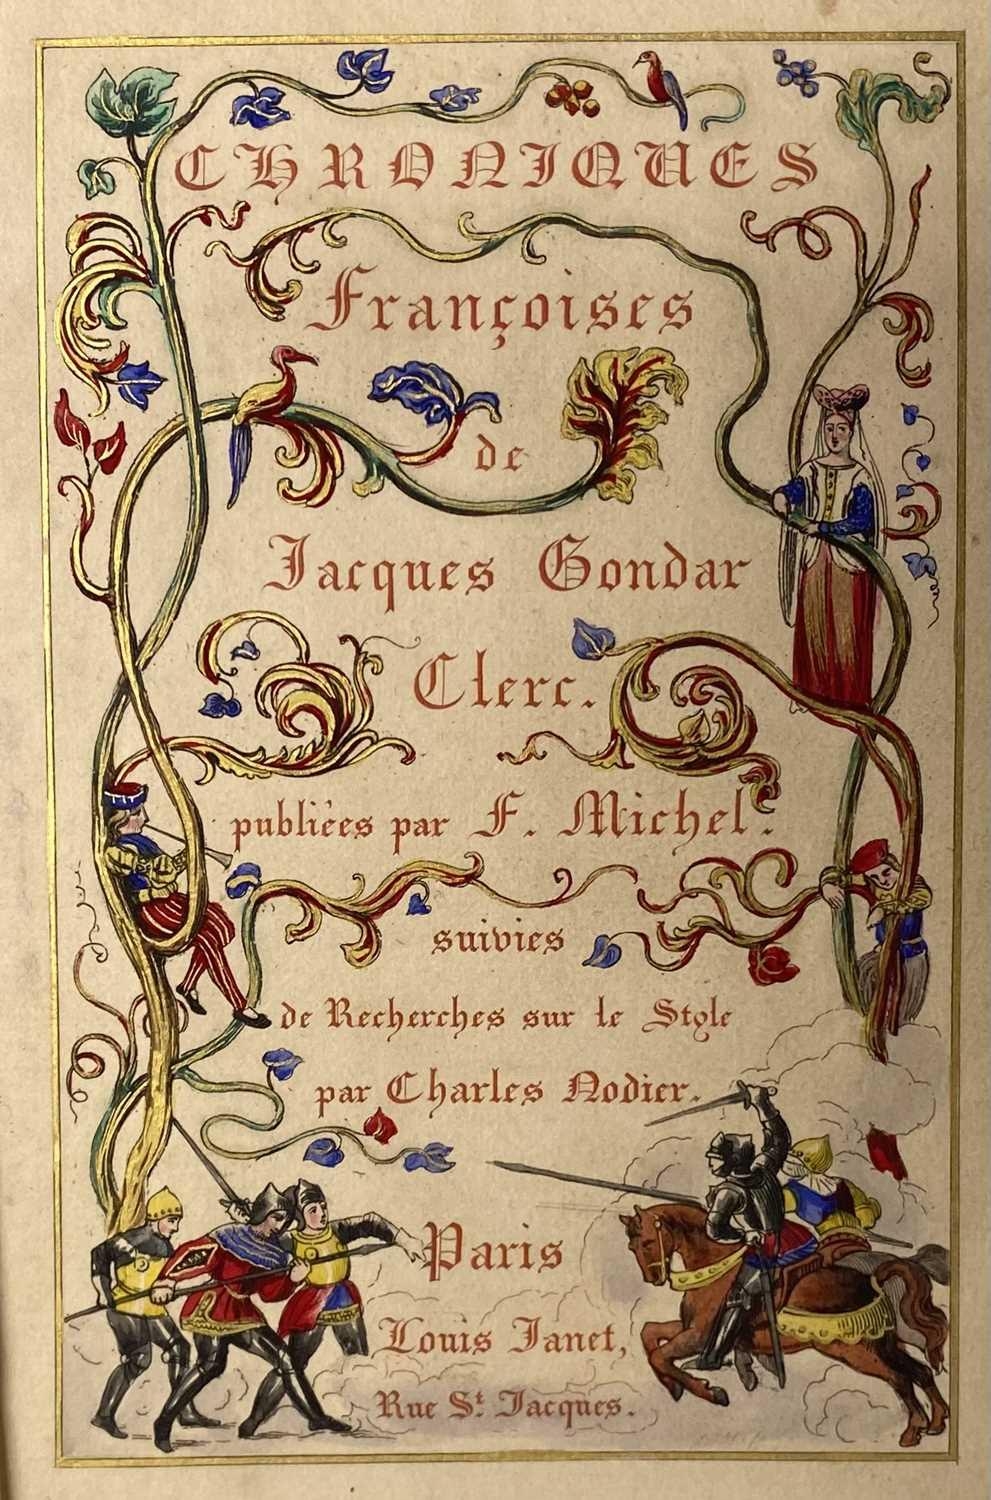 CHRONIQUES
Françoises
de
Jacques Gondar
Clerc.
publiées par F. Michel.
suivies
de Recherches sur le Style
par Charles Nodier.
Paris
Louis Janet,
Rue St. Jacques.